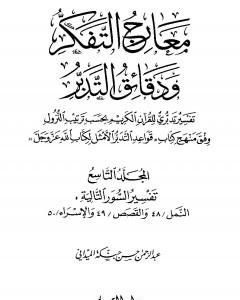 معارج التفكر
ودقائق التدبر
تفسير تدبري للقرآن الكريم بحسب ترتيب النزول
وفق منهج كتاب «قواعد التدبر الأمثل لكتاب الله عز وجل»
المجلد التاسع
تفسير السور التالية
النمل / ٤٨ والقصص / ٤٩ والإسراء / ٥٠
عبد الرحمن حسن حبنكة الميداني